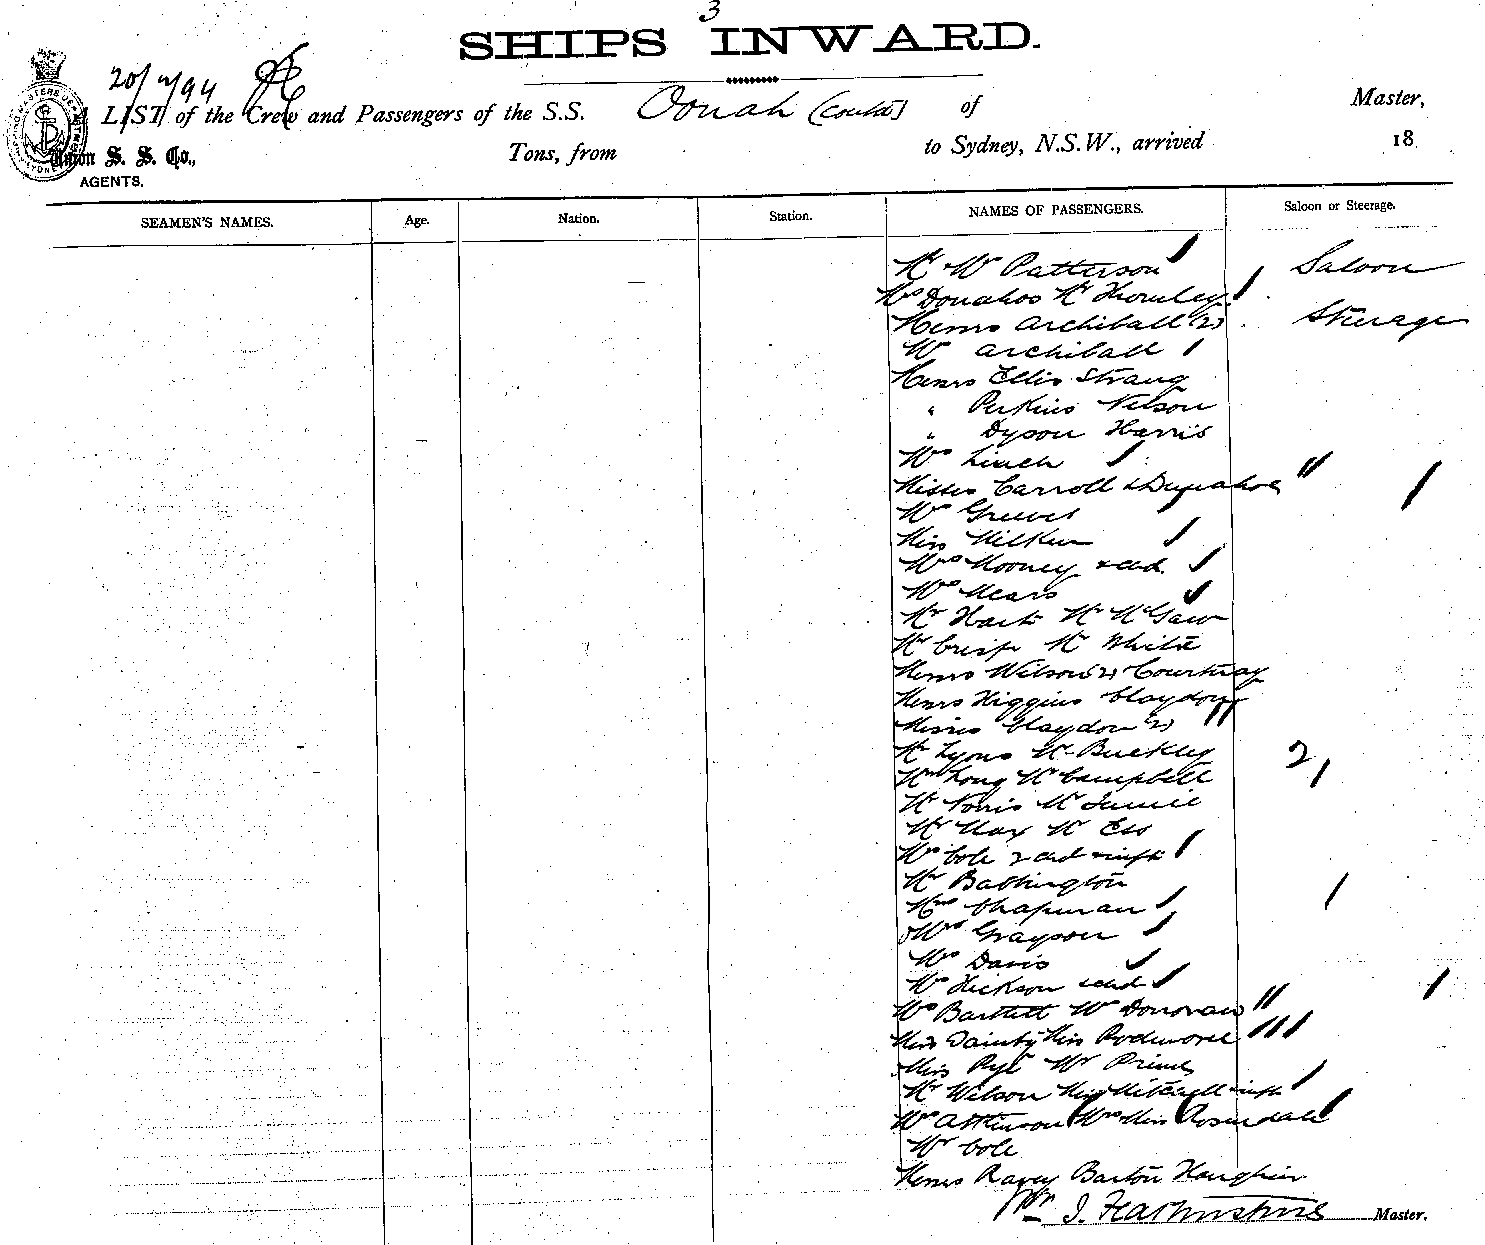 3
SHIPS INWARD.
20/ /94
LIST of the Crew and Passengers of the S.S. Oonah (contd) of Master,
Union S. S. Co., Tons, from to Sydney, N.S.W., arrived 18
AGENTS.
SEAMEN'S NAMES. Age. Nation. Station. NAMES OF PASSENGERS. Saloon or Steerage.
Mr W Patterson Saloon
Mrs Donahoo Mr Thornley
Messrs Archiball (2) Steerage
Mr Archiball
Messrs Ellis Strang
" Perkins Nelson
" Dyson Harris
Mrs Linch
Misses Carroll &
Mr Greeves
Miss Milken
Mrs Mooney & chd.
Mrs Mears
Mr Hart Mr McGaw
Mr Crisp Mr White
Messrs Wilson (2) Courtnay
Messrs Higgins Claydon
Misses Claydon (2)
Mr Lyons Mr Buckley 2
Mr Long Mr Campbell
Mr Norris Mr
Mr Max Mr
Mrs Cole 2 chd & inft
Mr Babbington
Mrs Chapman
Mrs Grayson
Mrs Davis
Mrs Hickson & chd
Mrs Bartlett Mr Donovan
Miss Dainty Miss
Miss Pye Mr
Mr Wilson Miss Mitchell & inft
Mrs Atkinson Mrs Miss Rosendale
Mr Cole
Messrs Ravey Barton
Master.